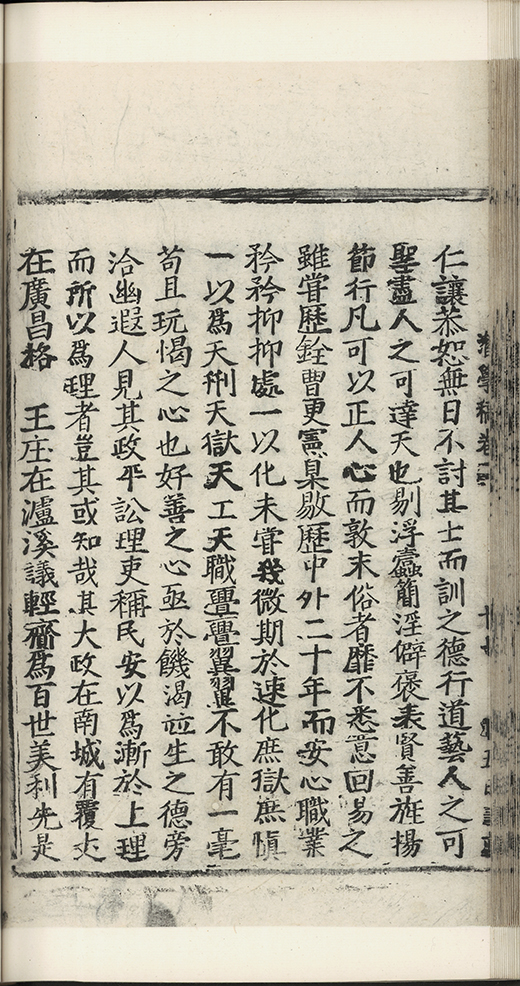 仁讓恭恕無日不討其士而訓之德行道藝人之可
聖盡人之可達天也剔浮蠹簡淫僻褒表賢善旌揚
節行凡可以正人心而敦末俗者靡不悉意回易之
雖嘗歷銓曹更憲臬敭歷中外二十年而安心職業
矜矜抑抑處一以化未嘗幾微期於速化庶獄庶愼
一以爲天刑天獄天工天職亹亹翼翼不敢有一毫
苟且玩愒之心也好善之心亟於饑渴竝生之德旁
洽幽遐人見其政平訟理吏稱民安以爲漸於上理
而所以爲理者豈其或知哉其大政在南城有覆丈
在廣昌格 王庄在瀘溪議輕齎爲百世美利先是
學稿卷